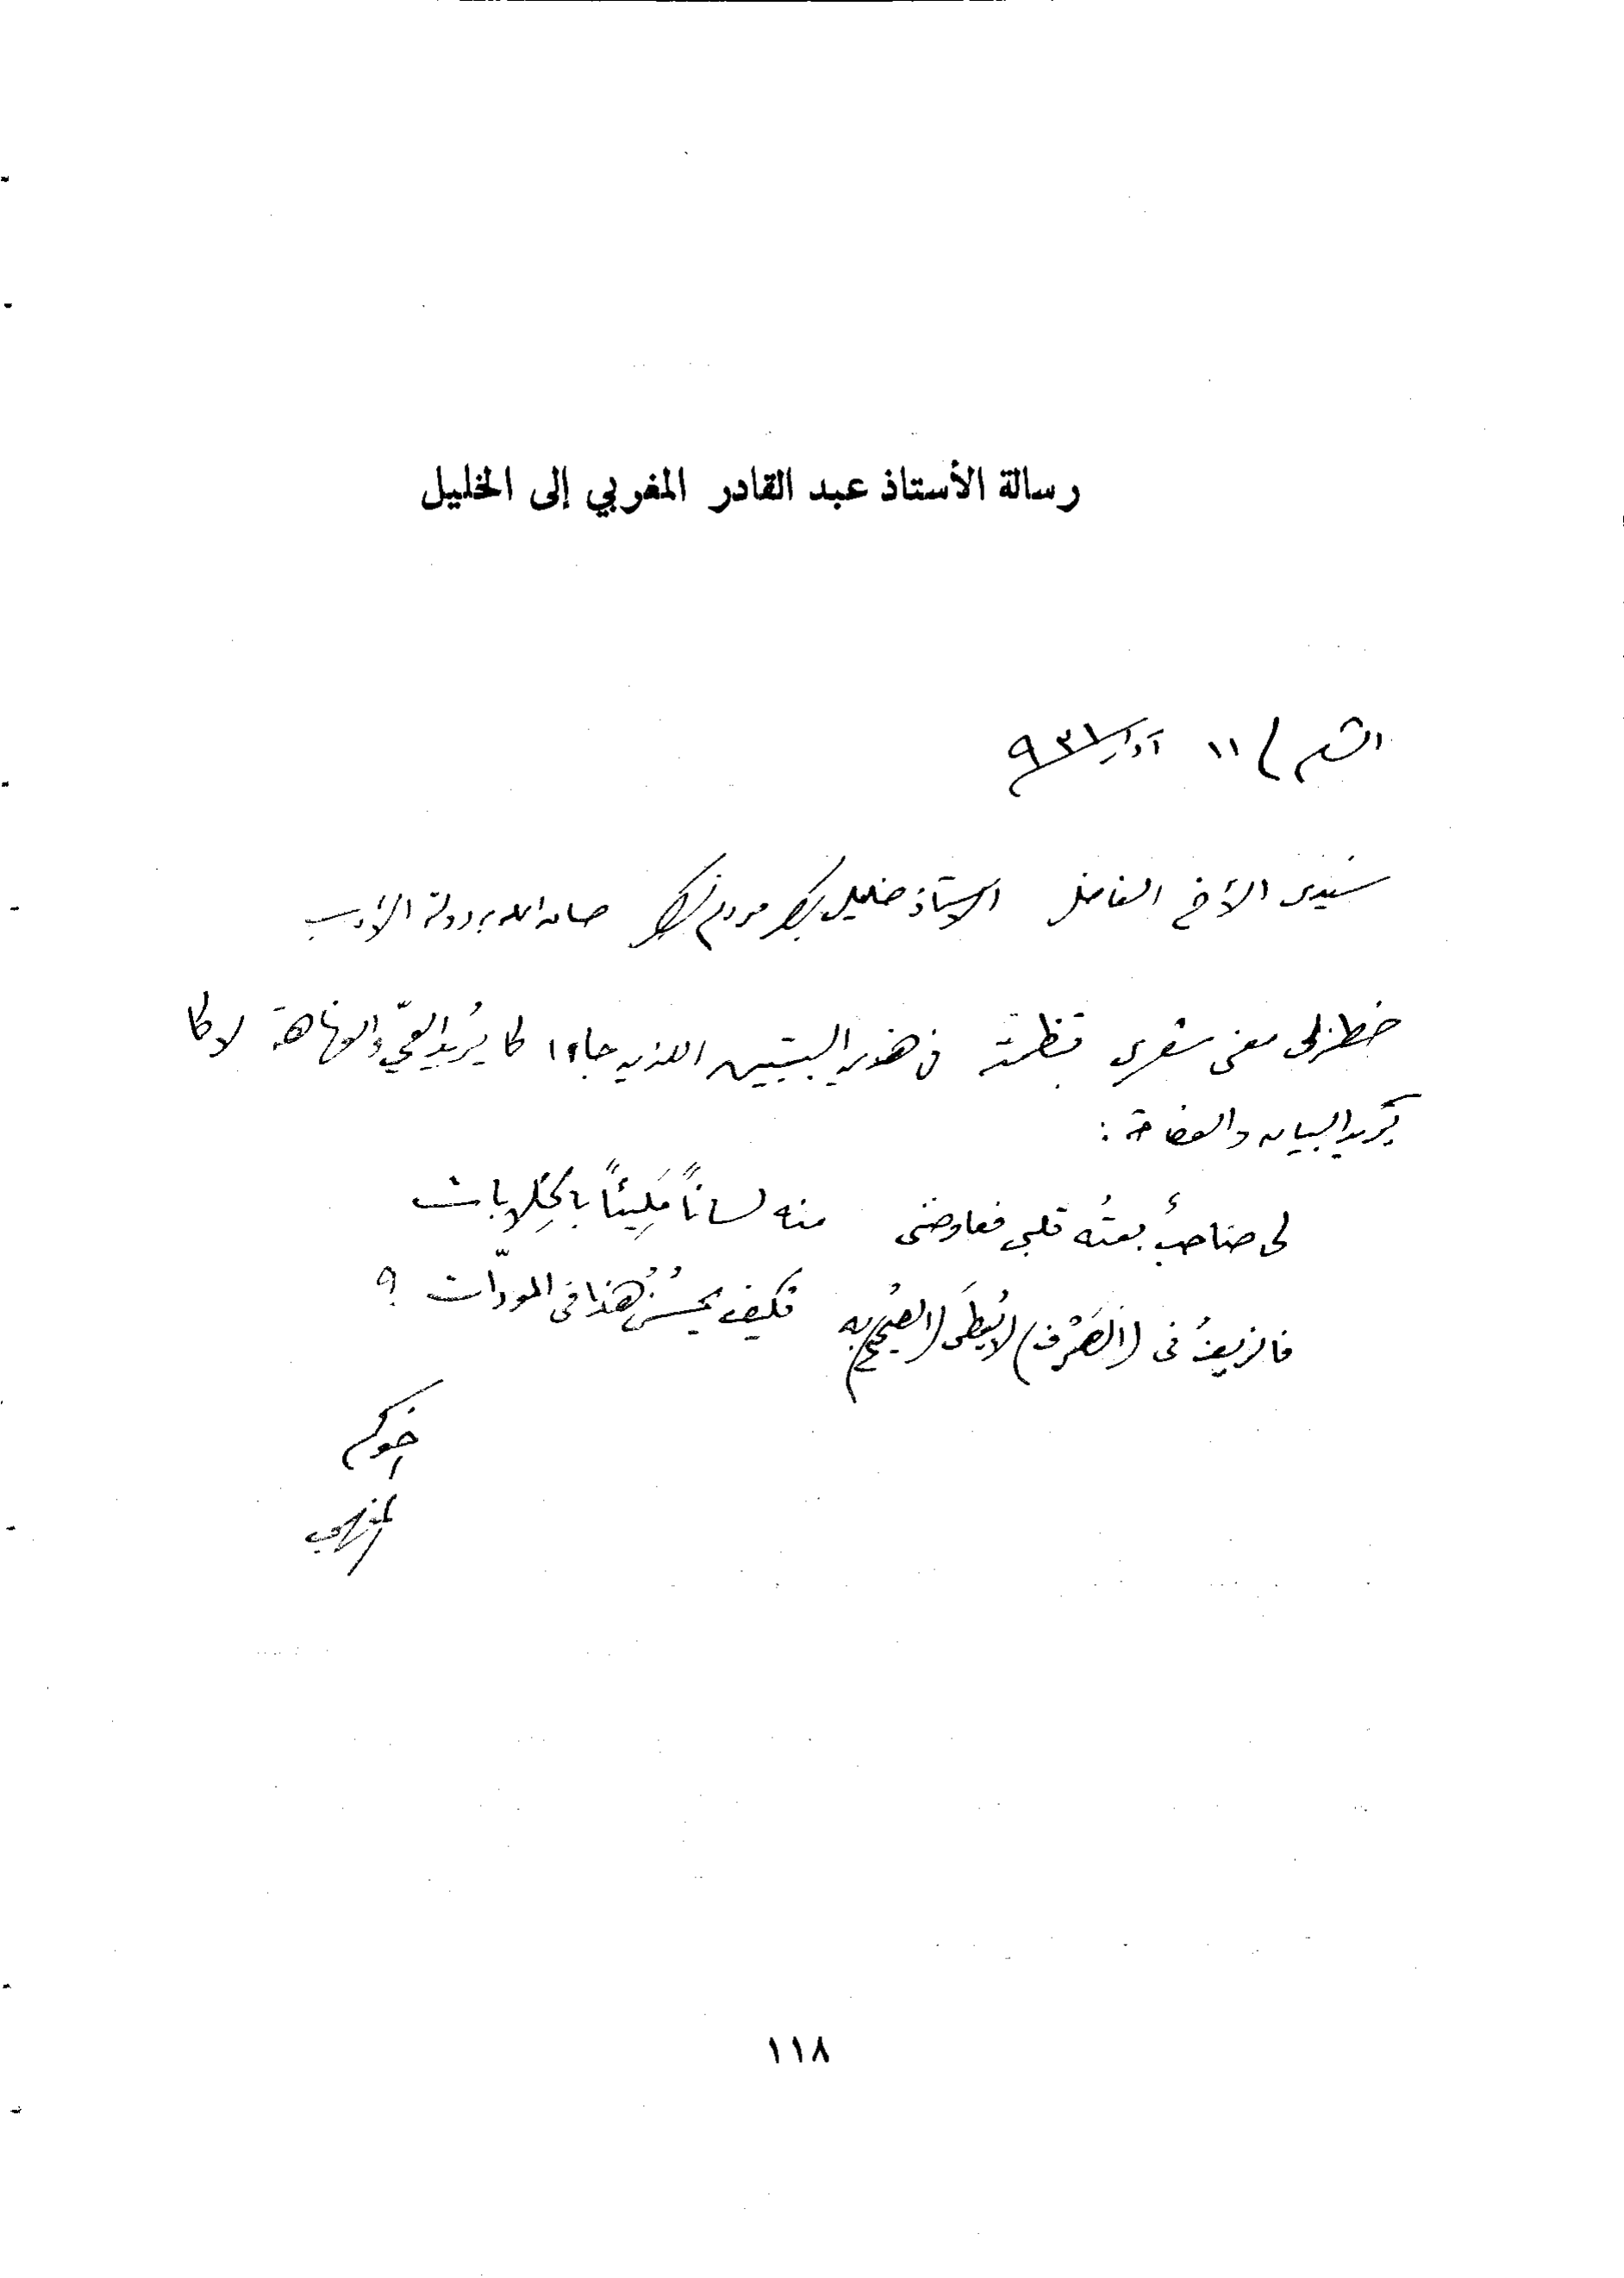 رسالة الأستاذ عبد القادر المغربي إلى الخليل
الشام ١١ آذار ٩٣١
سيدى الأخ الفاضل الاستاذ خليل بك مردم بك صان الله به دولة الأدب
خطر لى معنى شعري فنظمته فى هذين البيتين اللذين جاءا كما يُريد العيّ والفهاهة لا كما
يريد البيان والفصاحة :
لى صاحبٌ بعتُه قلبي فعاوضنى منه لساناً مَلِيئاً بالخِلابات
فالزيفُ فى (الصَرْف) لا يُعطَى (الصحيحُ) به فكيف يحسُنُ هٰذا فى المودّات ؟
اخوكم
المغربي
١١٨